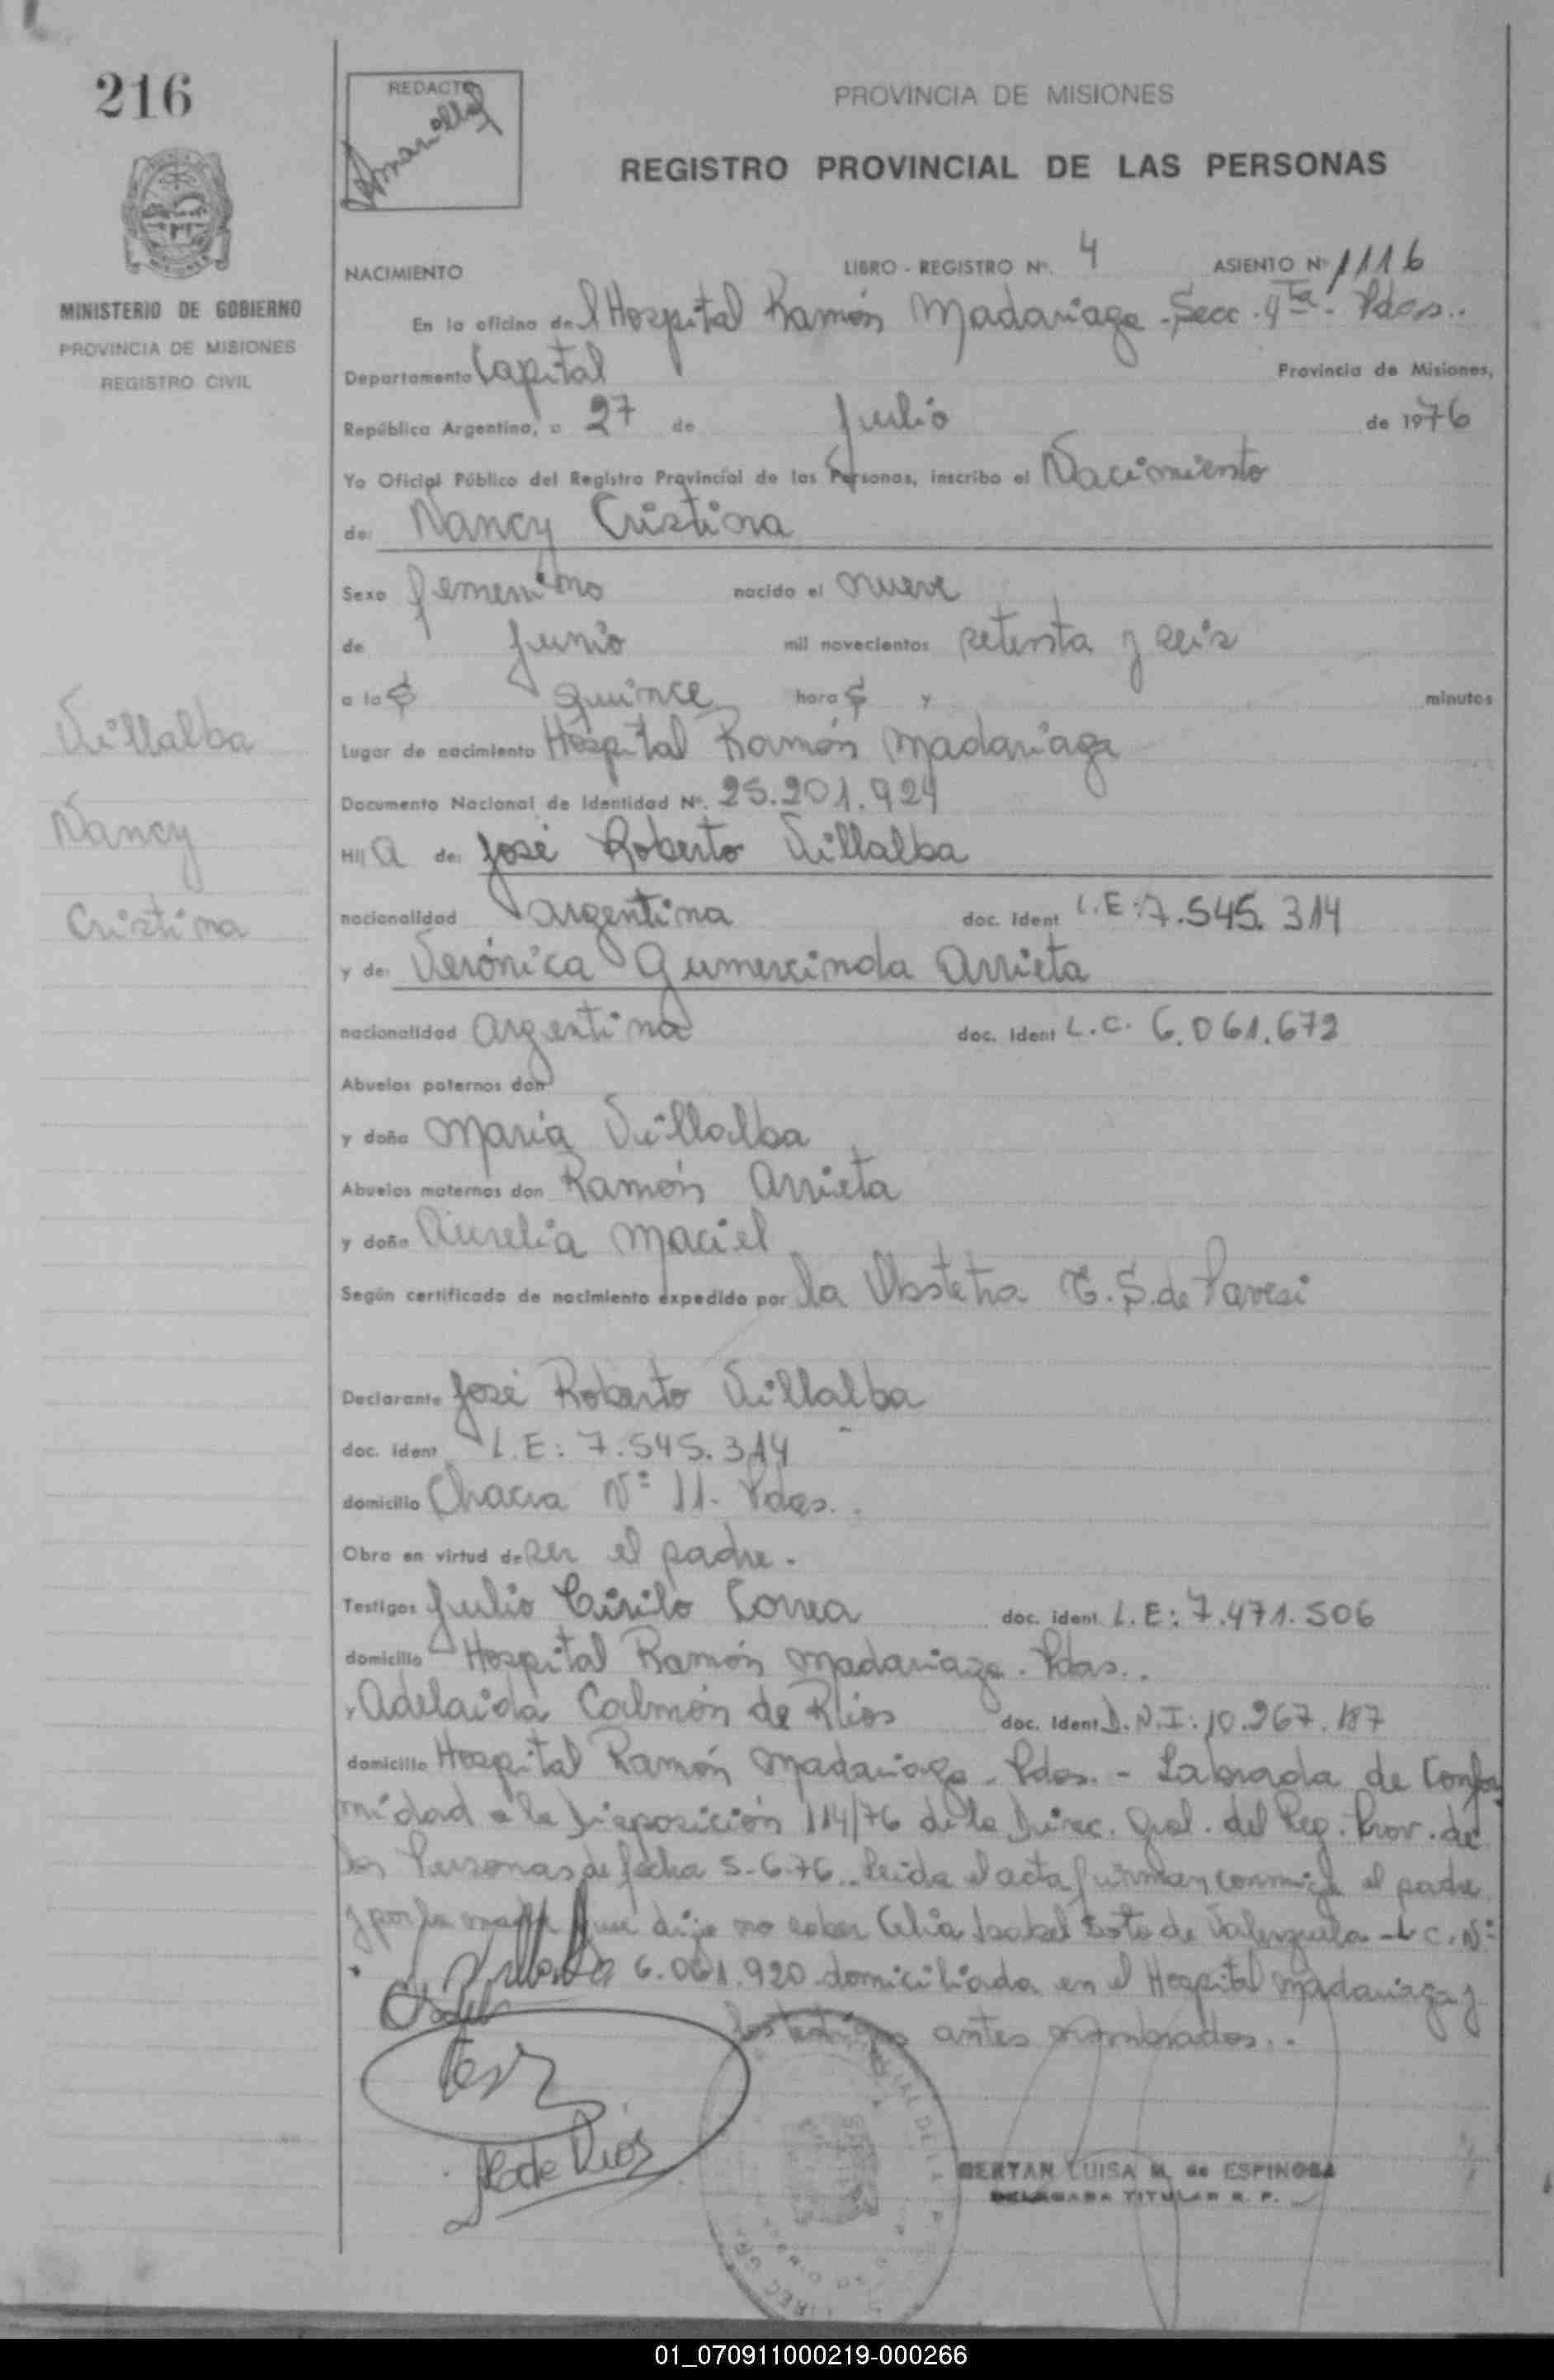 216
REDACTO
PROVINCIA DE MISIONES
REGISTRO PROVINCIAL DE LAS PERSONAS
MINISTERIO DE GOBIERNO
PROVINCIA DE MISIONES
REGISTRO CIVIL
NACIMIENTO LIBRO - REGISTRO Nº. 4 ASIENTO Nº 1116
En la oficina del Hospital Ramón Madariaga - Secc. 4ta. Pdas..
Departamento Capital Provincia de Misiones,
República Argentina, a 27 de Julio de 1976
Yo Oficial Público del Registro Provincial de las Personas, inscribo el Nacimiento
de: Nancy Cristina
Sexo femenino nacido el nueve
de junio mil novecientos setenta y seis
a las quince horas y minutos
Villalba
Nancy
Cristina
Lugar de nacimiento Hospital Ramón Madariaga
Documento Nacional de Identidad Nº. 25.201.924
Hij a de: José Roberto Villalba
nacionalidad argentina doc. Ident L.E: 7.545.314
y de: Verónica Gumercinda Arrieta
nacionalidad argentina doc. Ident L.C. 6.061.672
Abuelos paternos don
y doña María Villalba
Abuelos maternos don Ramón Arrieta
y doña Aurelia Maciel
Según certificado de nacimiento expedido por la Obstetra S. de Pavesi
Declarante José Roberto Villalba
doc. Ident L.E: 7.545.314
domicilio Chacra Nº 11 - Pdas..
Obra en virtud de ser el padre.
Testigos Julio Cirilo Correa doc. ident. L.E: 7.471.506
domicilio Hospital Ramón Madariaga. Pdas..
y Adelaida Calmón de Ríos doc. Ident D.N.I: 10.267.187
domicilio Hospital Ramón Madariaga - Pdas. - Labrada de Confor
midad a la Disposición 114/76 de la Direc. Gral. del Reg. Prov. de
las Personas de fecha 5-6-76.. Leida el acta firman conmigo el padre
y por la madre que dijo no saber Celia Isabel Soto de Valenzuela - L.C. Nº
6.061.920 domiciliada en el Hospital Madariaga y
los testigos antes nombrados..
Villalba
de Rios
BERTAN LUISA M. de ESPINOSA
DELEGADA TITULAR R. P.
01_070911000219-000266